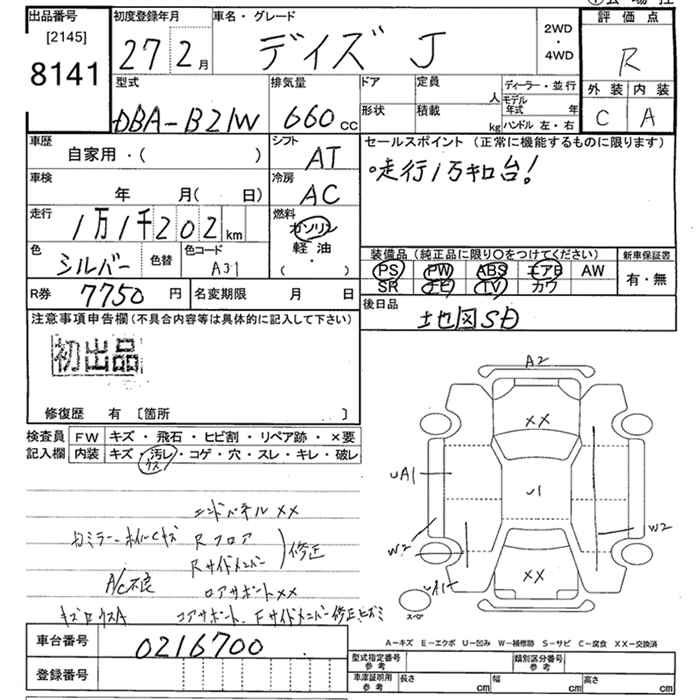 出品番号
[2145]
8141
初度登録年月
27 2月
車名・グレード
デイズ J
2WD
・
4WD
評価点
R
外装 内装
C A
型式
DBA-B21W
排気量
660 cc
ドア
定員
人
形状
積載
kg
ディーラー・並行
モデル年式 年
ハンドル 左・右
車歴
自家用・( )
シフト
AT
セールスポイント (正常に機能するものに限ります)
走行1万キロ台!
車検
年 月( 日)
冷房
AC
走行
1万1千202 km
燃料
ガソリン
軽油
( ・ )
色
シルバー
色替
色コード
A31
装備品 (純正品に限り○をつけてください)
PS PW ABS エアB AW
SR ナビ TV カワ
新車保証書
有・無
R券 7750 円
名変期限 月 日
後日品
地図SD
注意事項申告欄(不具合内容等は具体的に記入して下さい)
初出品
修復歴 有 [箇所 ]
検査員記入欄
FW キズ・飛石・ヒビ割・リペア跡・×要
内装 キズ・汚レ・コゲ・穴・スレ・キレ・破レ
A2
XX
UA1
U1
W2
W2
XX
UA1
スペア
インドパネルXX
Rフロア
Rサイドメンバー
修正
A/C不良
ロアサポートXX
コアサポート、Fサイドメンバー修正
A-キズ E-エクボ U-凹み W-補修跡 S-サビ C-腐食 XX-交換済
車台番号 0216700
登録番号
型式指定番号
参考
類別区分番号
参考
車庫証明
参考
長さ cm
幅 cm
高さ cm